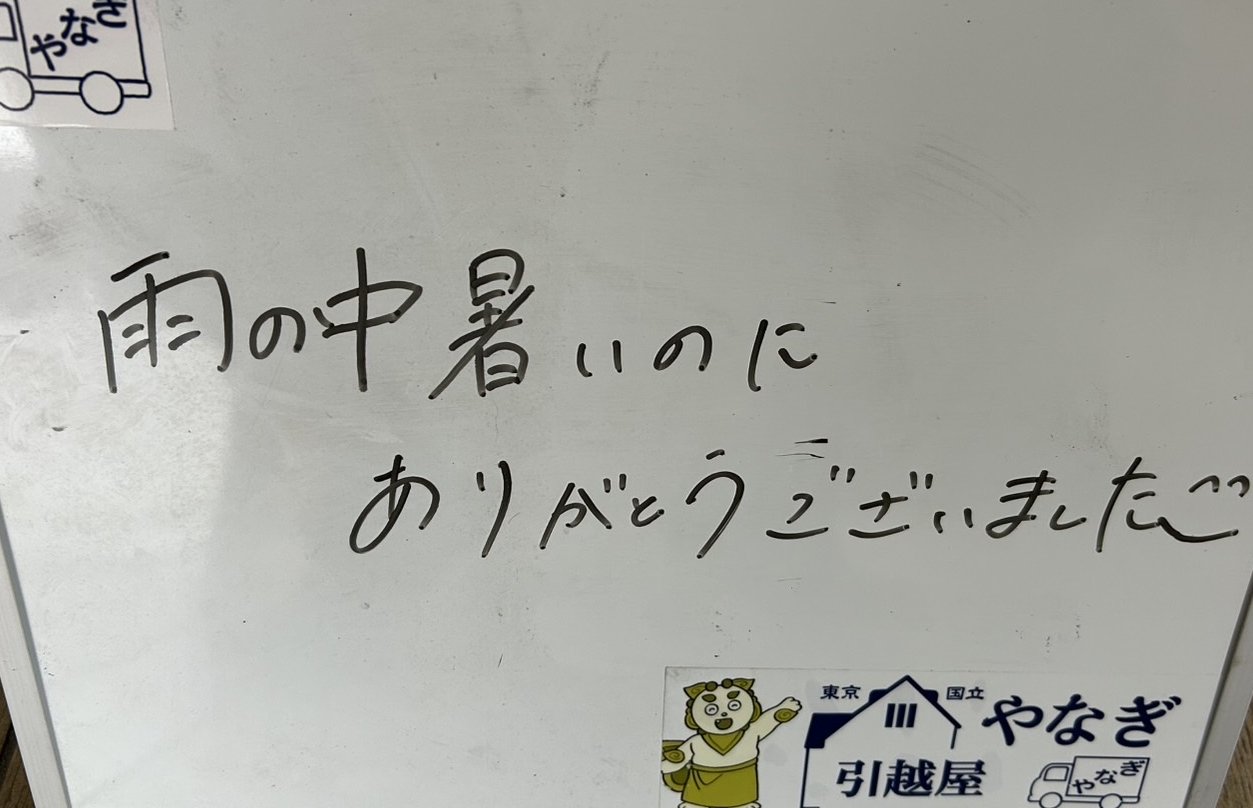 やなぎ
雨の中暑いのに
ありがとうございました
東京 国立 やなぎ
引越屋 やなぎ